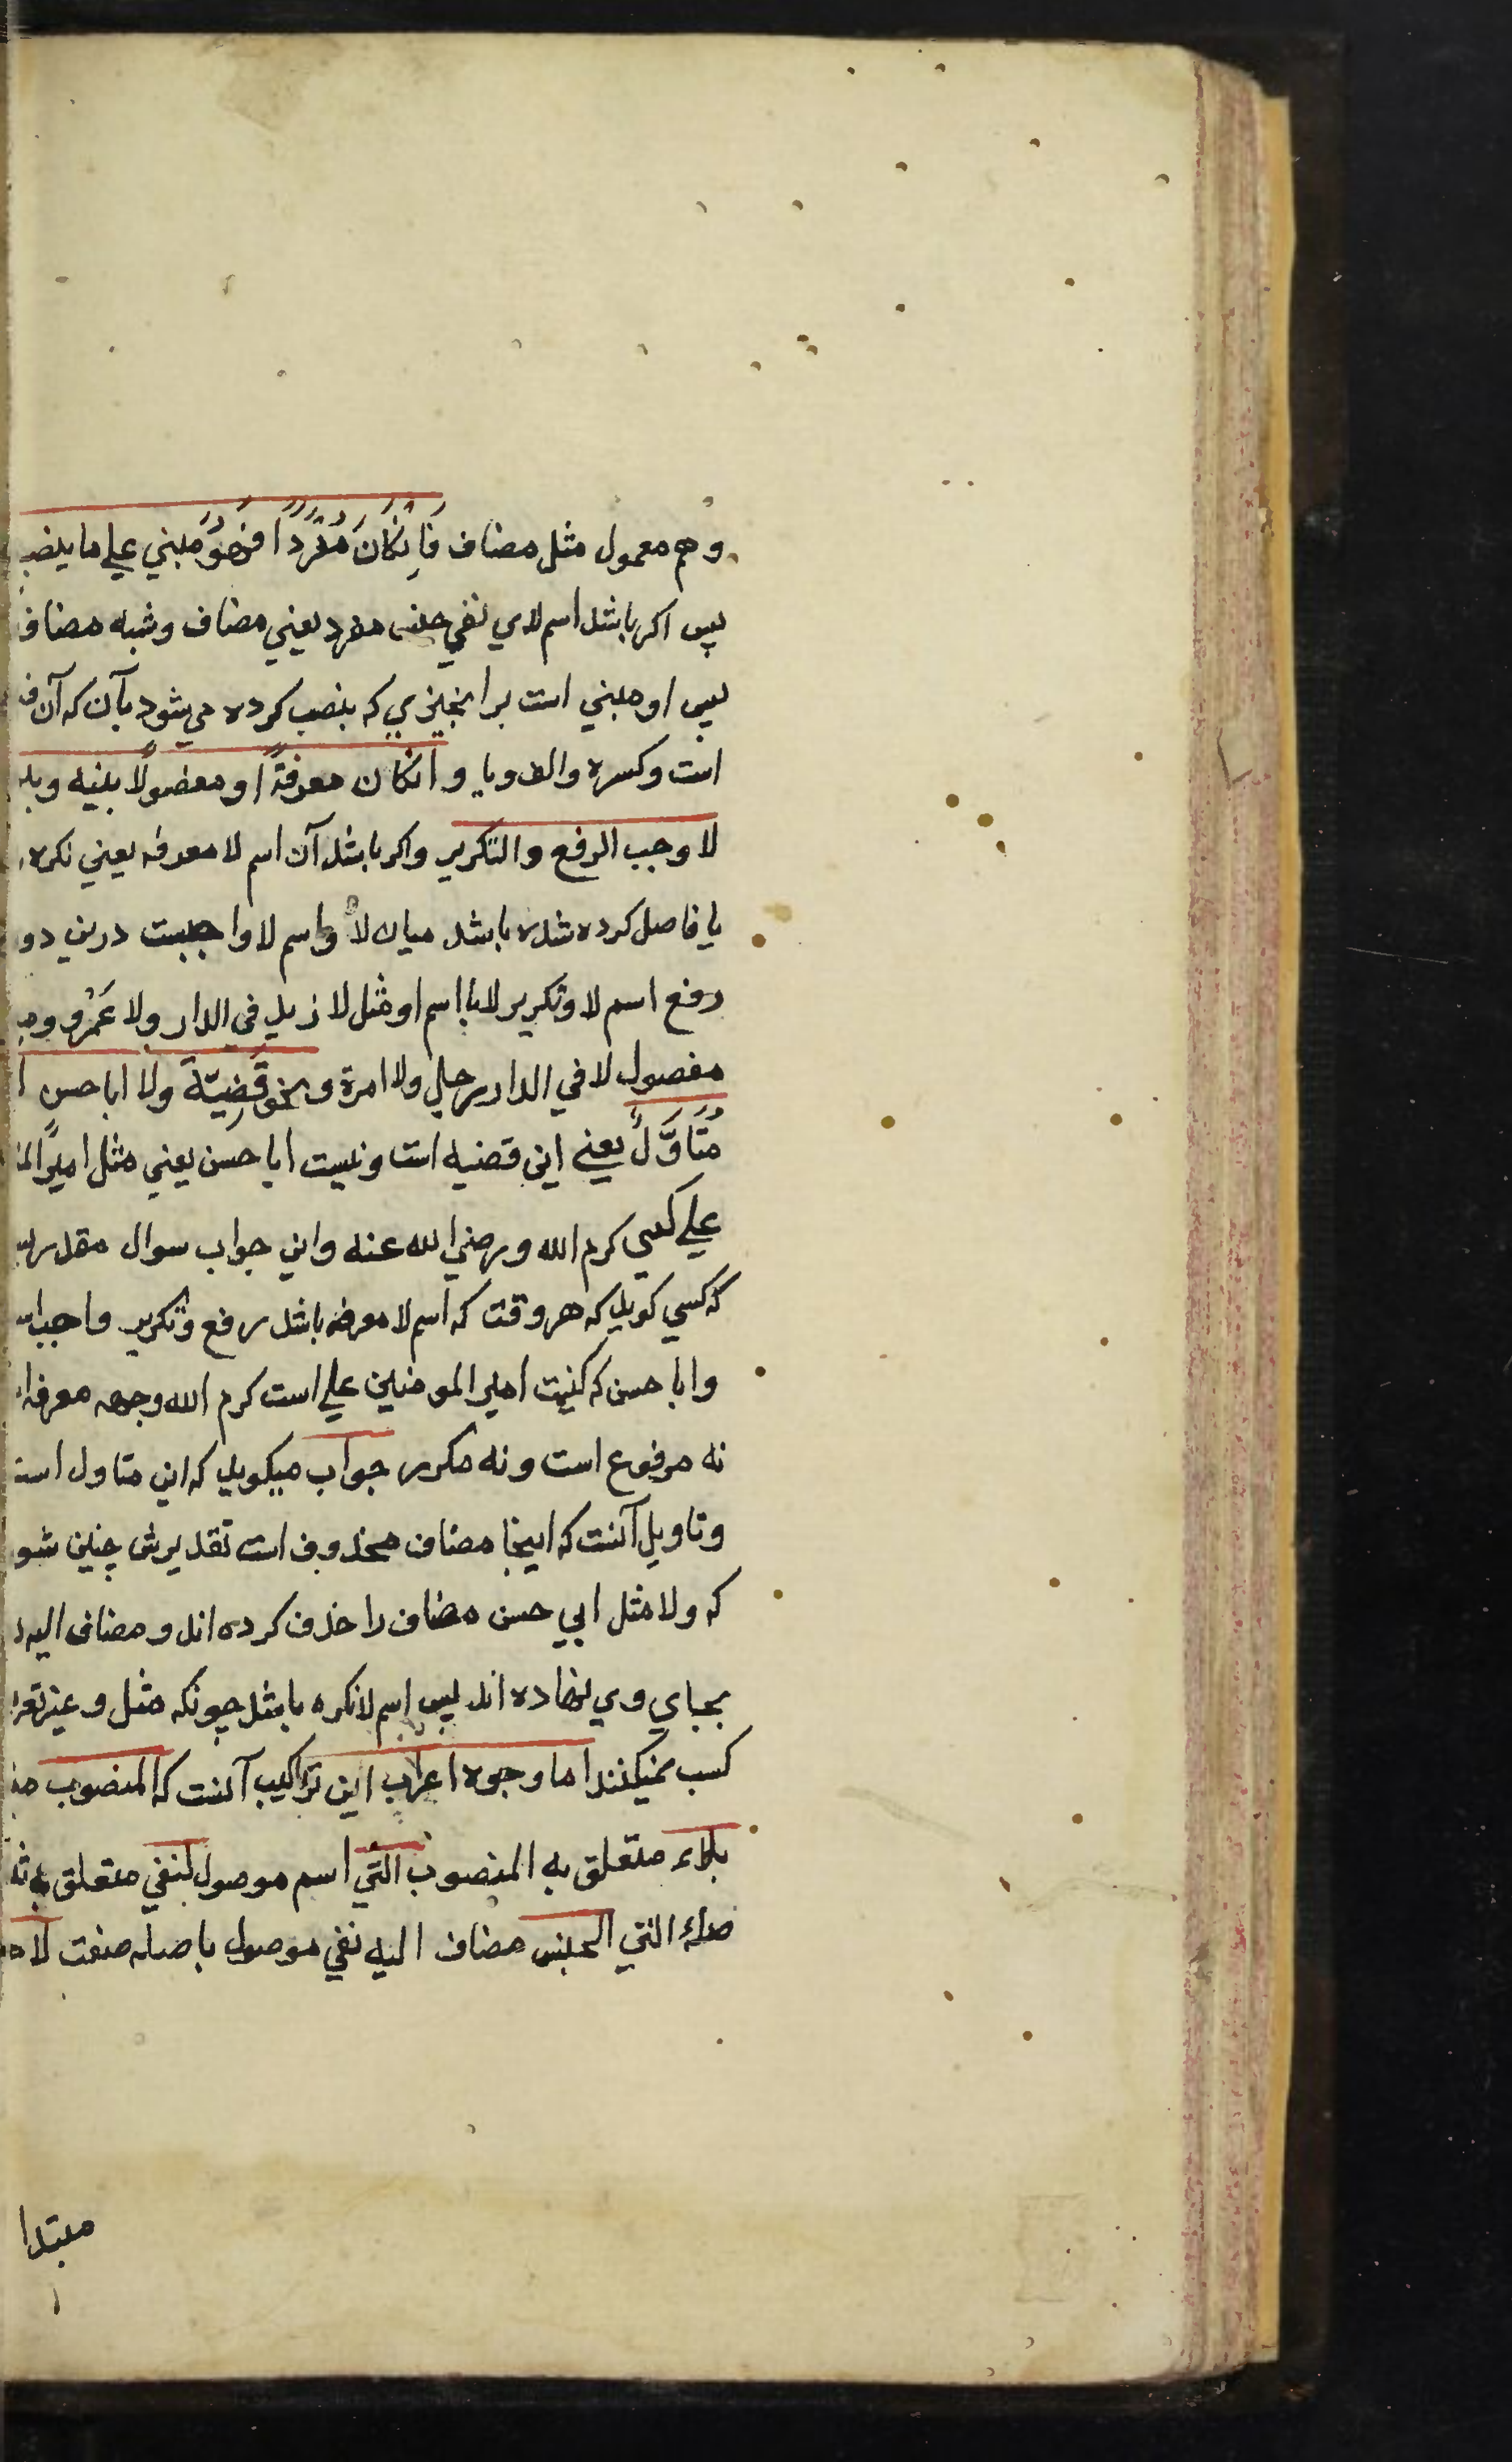 و هم معمول مثل مضاف فَاِنْكَانَ مُفْرَدًا فَهُوَ مبني علي ما ينصب
پس اكر باشد اسم لاي نفي جنس مفرد يعني مضاف وشبه مضاف
پس او مبني است بر انچيزي كه بنصب كرده مي شود بآن كه آن ف
است وكسره والف ويا و انكان معرفةً او مفصولًا بينه وبين
لا وجب الرفع والتكرير واكر باشد آن اسم لا معرفه يعني نكره
يا فاصل كرده شده باشد ميان لا واسم لا واجبست درين دو
رفع اسم لا وتكرير لا با اسم او مثل لا زيد في الدار ولا عَمْرو و
مفصول لا في الدار رجل ولا امرة و نحو قَضِيَّة ولا ابا حسن
مُتَاَوَّلٌ يعني اين قضيه است ونيست ابا حسن يعني مثل امير
علي كسي كرم الله ورضي الله عنه واين جواب سوال مقدر
كه كسي كويد كه هر وقت كه اسم لا معرفه باشد رفع وتكرير واجب
وابا حسن كه كنيت امير المومنين علي است كرم الله وجهه معرفه
نه مرفوع است ونه مكرر جواب ميكويد كه اين متاول است
وتاويل آنست كه اينجا مضاف محذوف است تقديرش چنين شو
كه ولا مثل ابي حسن مضاف را حذف كرده اند و مضاف اليه
بجاي وي نهاده اند پس اسم لا نكره باشد چونكه مثل و غير
كسب نميكنند اما وجوه اعراب اين تراكيب آنست كه المنصوب
بلاء متعلق به المنصوب التي اسم موصول لنفي متعلق به
صله التي الجنس مضاف اليه نفي موصول با صله صفت لا
مبتدا